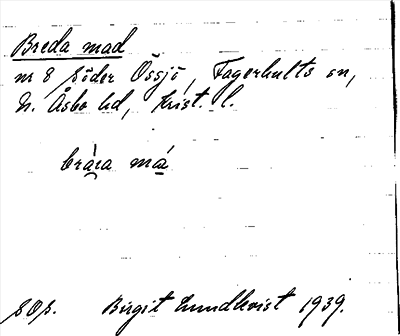 Breda mad
nr 8 Söder Össjö, Fagerhults sn,
N. Åsbo hd, Krist. l.
bràra má
sOs. Birgit Lundkvist 1939.